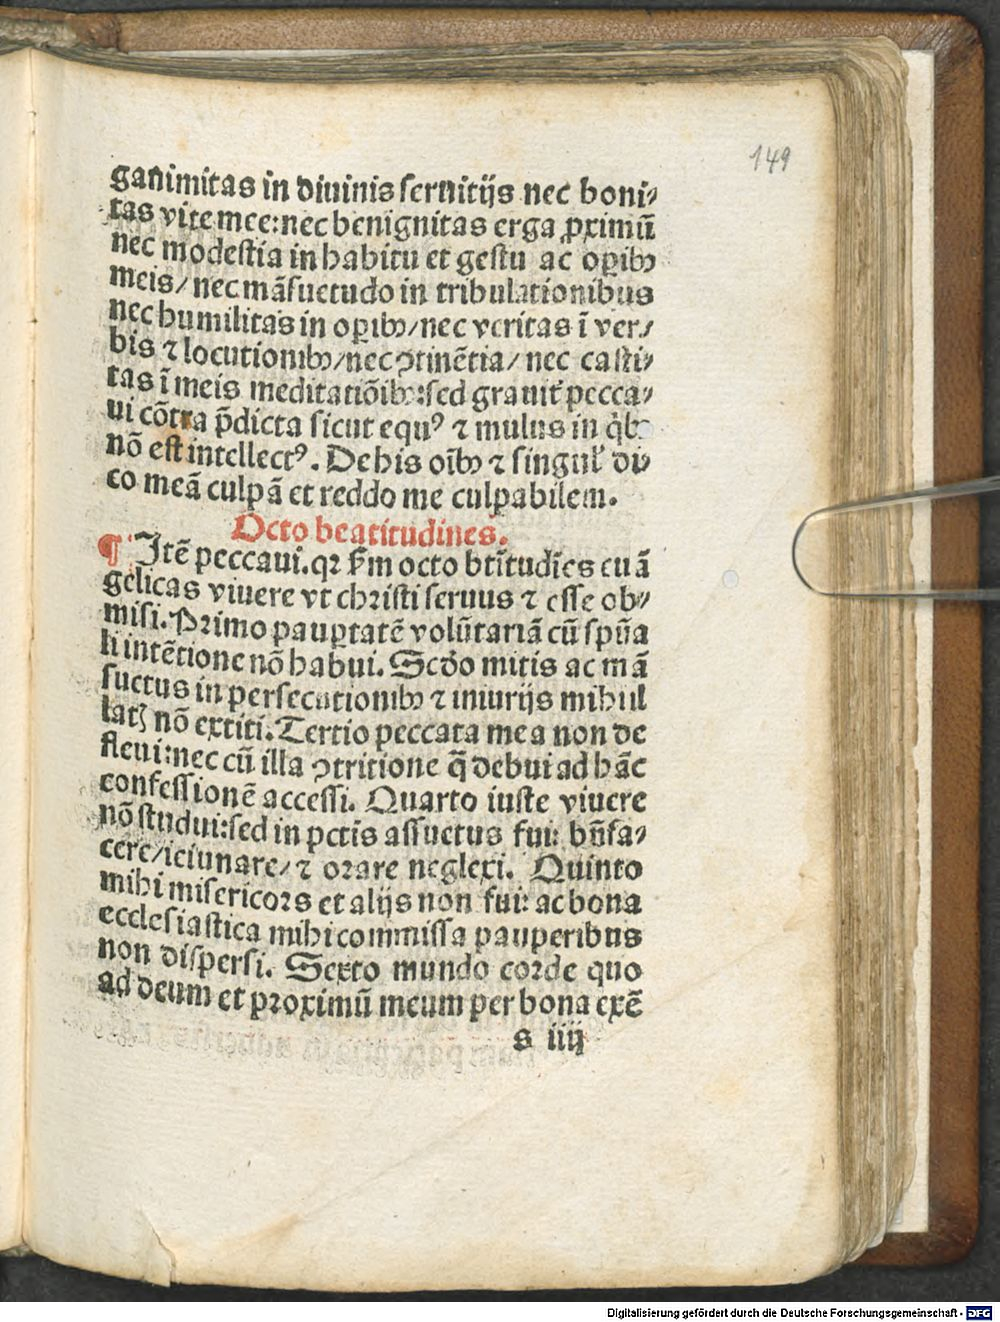 149
ganimitas in diuinis seruitijs nec boni⸗
tas vite mee: nec benignitas erga ꝓximū
nec modestia in habitu et gestu ac oꝑibꝰ
meis/ nec mãsuetudo in tribulationibus
nec humilitas in oꝑibꝰ/ nec veritas ī ver⸗
bis ⁊ locutionibꝰ/ nec ꝯtinētia/ nec casti⸗
tas ī meis meditatiōibꝰ: sed grauit̃ pecca⸗
ui cōtra p̄dicta sicut equꝰ ⁊ mulus in q̈bꝰ
nō est intellectꝰ. De his oībꝰ ⁊ singul̕ di⸗
co meā culpā et reddo me culpabilem.
Octo beatitudines.
¶ Itē peccaui. qꝛ ẜm octo btītudīes euā
gelicas viuere vt christi seruus ⁊ esse ob⸗
misi. Primo pauꝑtatē volūtariā cū spūa
li intētione nō habui. Scđo mitis ac mā
suetus in persecutionibꝰ ⁊ iniurijs mihi il
latꝭ nō extiti. Tertio peccata mea non de
fleui: nec cū illa ꝯtritione q̄ debui ad hāc
confessionē accessi. Quarto iuste viuere
nō studui: sed in pctīs assuetus fui: bn̄fa⸗
cere/ ieiunare/ ⁊ orare neglexi. Quinto
mihi misericors et alijs non fui: ac bona
ecclesiastica mihi commissa pauperibus
non dispersi. Sexto mundo corde quo
ad deum et proximū meum per bona exē
s iiij
Digitalisierung gefördert durch die Deutsche Forschungsgemeinschaft - DFG